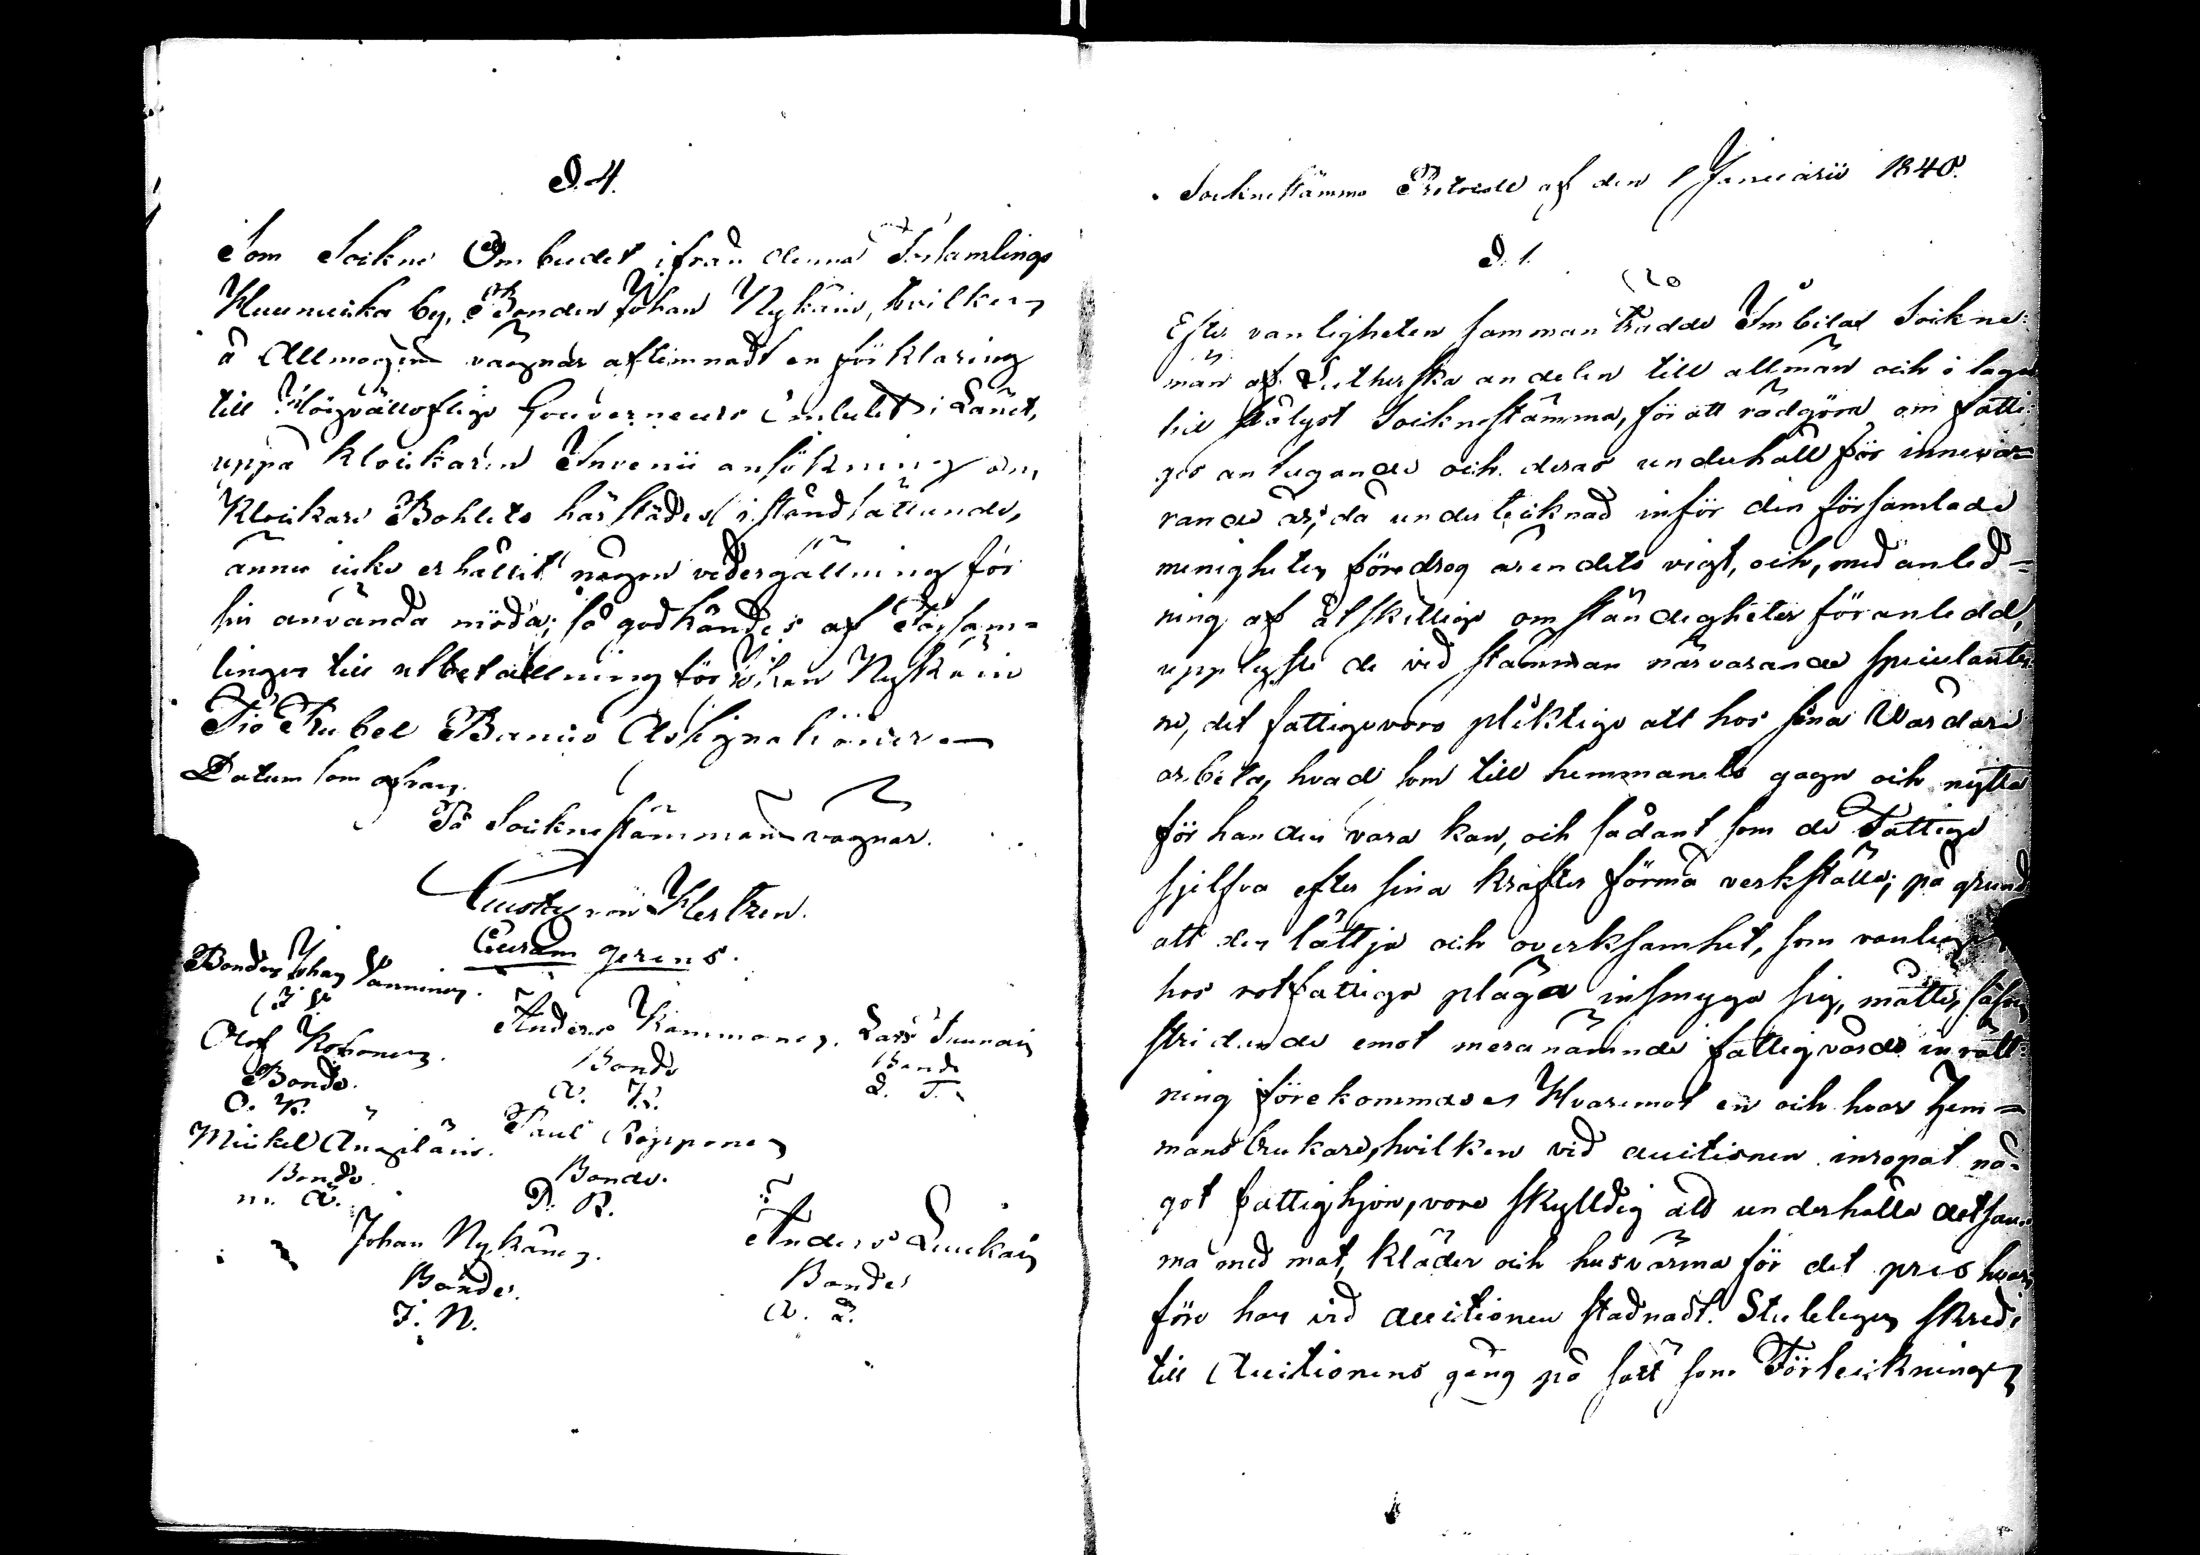 §. 4.
Som Sockne Ombudet ifrån denna Församlings
Huunuska by, Bonden Johan Nykäin, hvilken
å Allmogens vägnar aflemnadt en förklaring
till Högvälloflige Gouverneurs Embetet i Länet,
uppå Klockaren Invenii ansökning om
Klockare Bohlets härstädes iståndsättande,
ännu icke erhållit någon vedergällning för
sin använda möda; så godkändes af Försam=
lingen till utbetallning för Johan Nykäin
Tio Rubel Banco Assignationer.
Datum som ofvan.
På Sockne stämmans vägnar.
Gustaf von Hertzen.
Curam gerens.
Bonden Johan Tanninen.
Olof Kokonen. Anders Kammonen. Lars Tunnain
Bonde. Bonde Bonde
O. K. A. K. L. T.
Mickel Ängeläin. Paul Repponen
Bonde. Bonde.
M. Ä. P. R.
Johan Nykänen. Anders Luukain
Bonde. Bonde
J. N. A. L.
Sockne stämmo Protocoll af den 1 Januarii 1840.
§. 1.
Efter vanligheten sammanträdde Imbilax Sockne=
män af Lutherska andelen till allmän och i laga
tid pålyst Socknestämma, för att rådgöra om fatti=
ges antagande och deras underhåll för innevar=
rande år; då undertecknad inför den församlade
menigheten föredrog ärendets vigt, och, med anled=
ning af åtskillige omständigheter föranledd,
upplyste de vid stämman närvarande speculante
ne, det fattige voro pliktige att hos sina Vårdare
arbeta, hvad som till hemmanets gagn och nytta
förhanden vara kan, och sådant som de Fattige
sjelfva efter sina krafter förmå verkställa; på grund
att den lättja och overksamhet, som vanligen
hos rotfattige pläga insmyga sig, måtte, såsom
stridande emot meranämnde fattigvårds inrätt=
ning förekommas. Hvaremot en och hvar Hem=
mans brukare, hvilken vid auctionen inropat nå=
got fattighjon, vore skylldig att underhålla detsam=
ma med mat, kläder och husvärma för det pris hvar
före han vid auctionen stadnadt. Sluteligen skreds
till Auctionens gång på sätt som Förteckningen